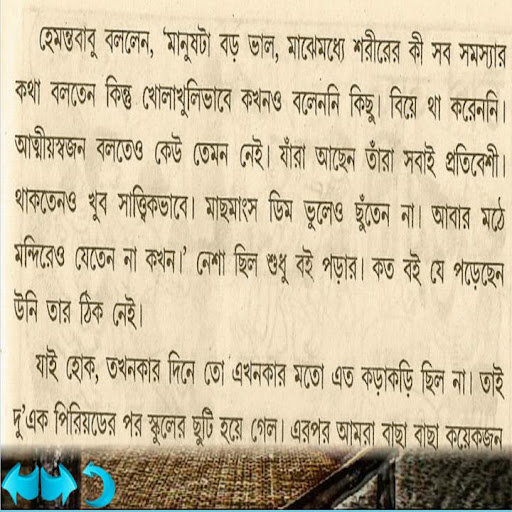 হেমন্তবাবু বললেন, 'মানুষটা বড় ভাল, মাঝেমধ্যে শরীরের কী সব সমস্যার
কথা বলতেন কিন্তু খোলাখুলিভাবে কখনও বলেননি কিছু। বিয়ে থা করেননি।
আত্মীয়স্বজন বলতেও কেউ তেমন নেই। যাঁরা আছেন তাঁরা সবাই প্রতিবেশী।
থাকতেনও খুব সাত্ত্বিকভাবে। মাছমাংস ডিম ভুলেও ছুঁতেন না। আবার মঠে
মন্দিরেও যেতেন না কখন।' নেশা ছিল শুধু বই পড়ার। কত বই যে পড়েছেন
উনি তার ঠিক নেই।
যাই হোক, তখনকার দিনে তো এখনকার মতো এত কড়াকড়ি ছিল না। তাই
দু'এক পিরিয়ডের পর স্কুলের ছুটি হয়ে গেল। এরপর আমরা বাছা বাছা কয়েকজন